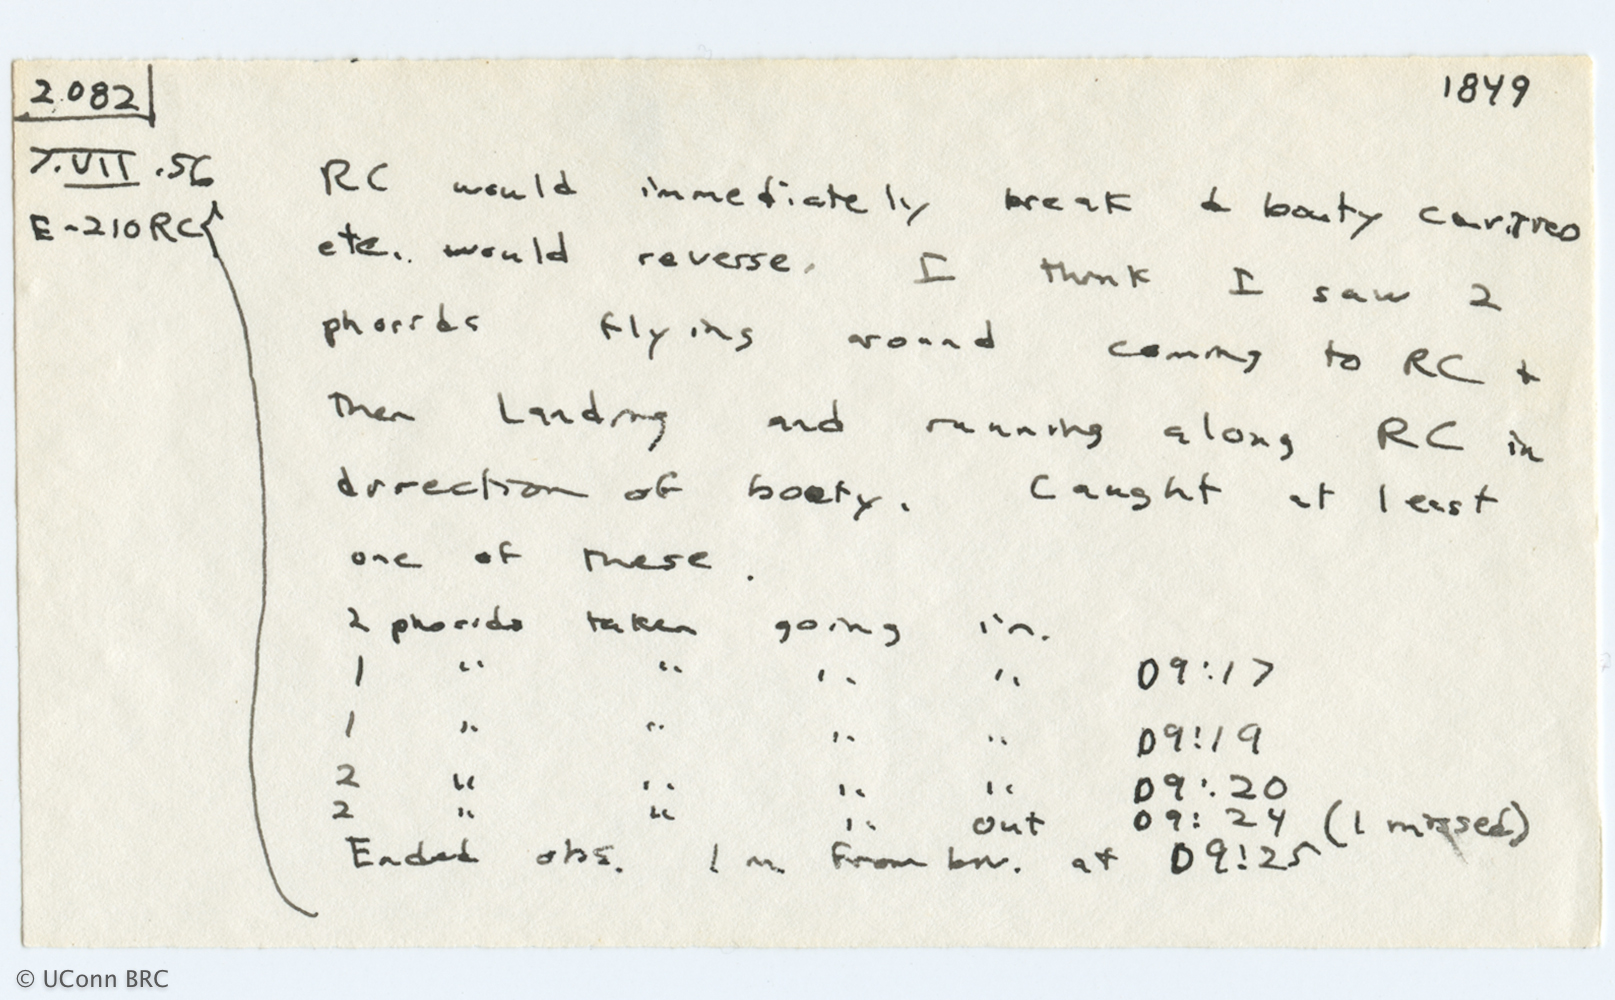 2.082
1849
7.VII.56
E-210RC
RC would immediately break & booty carriers
etc. would reverse. I think I saw 2
phorids flying around coming to RC &
then landing and running along RC in
direction of booty. Caught at least
one of these.
2 phorids taken going in.
1 " " " " 09:17
1 " " " " 09:19
2 " " " " 09:20
2 " " " out 09:24 (1 missed)
Ended obs. 1 m. from biv. at 09:25
© UConn BRC